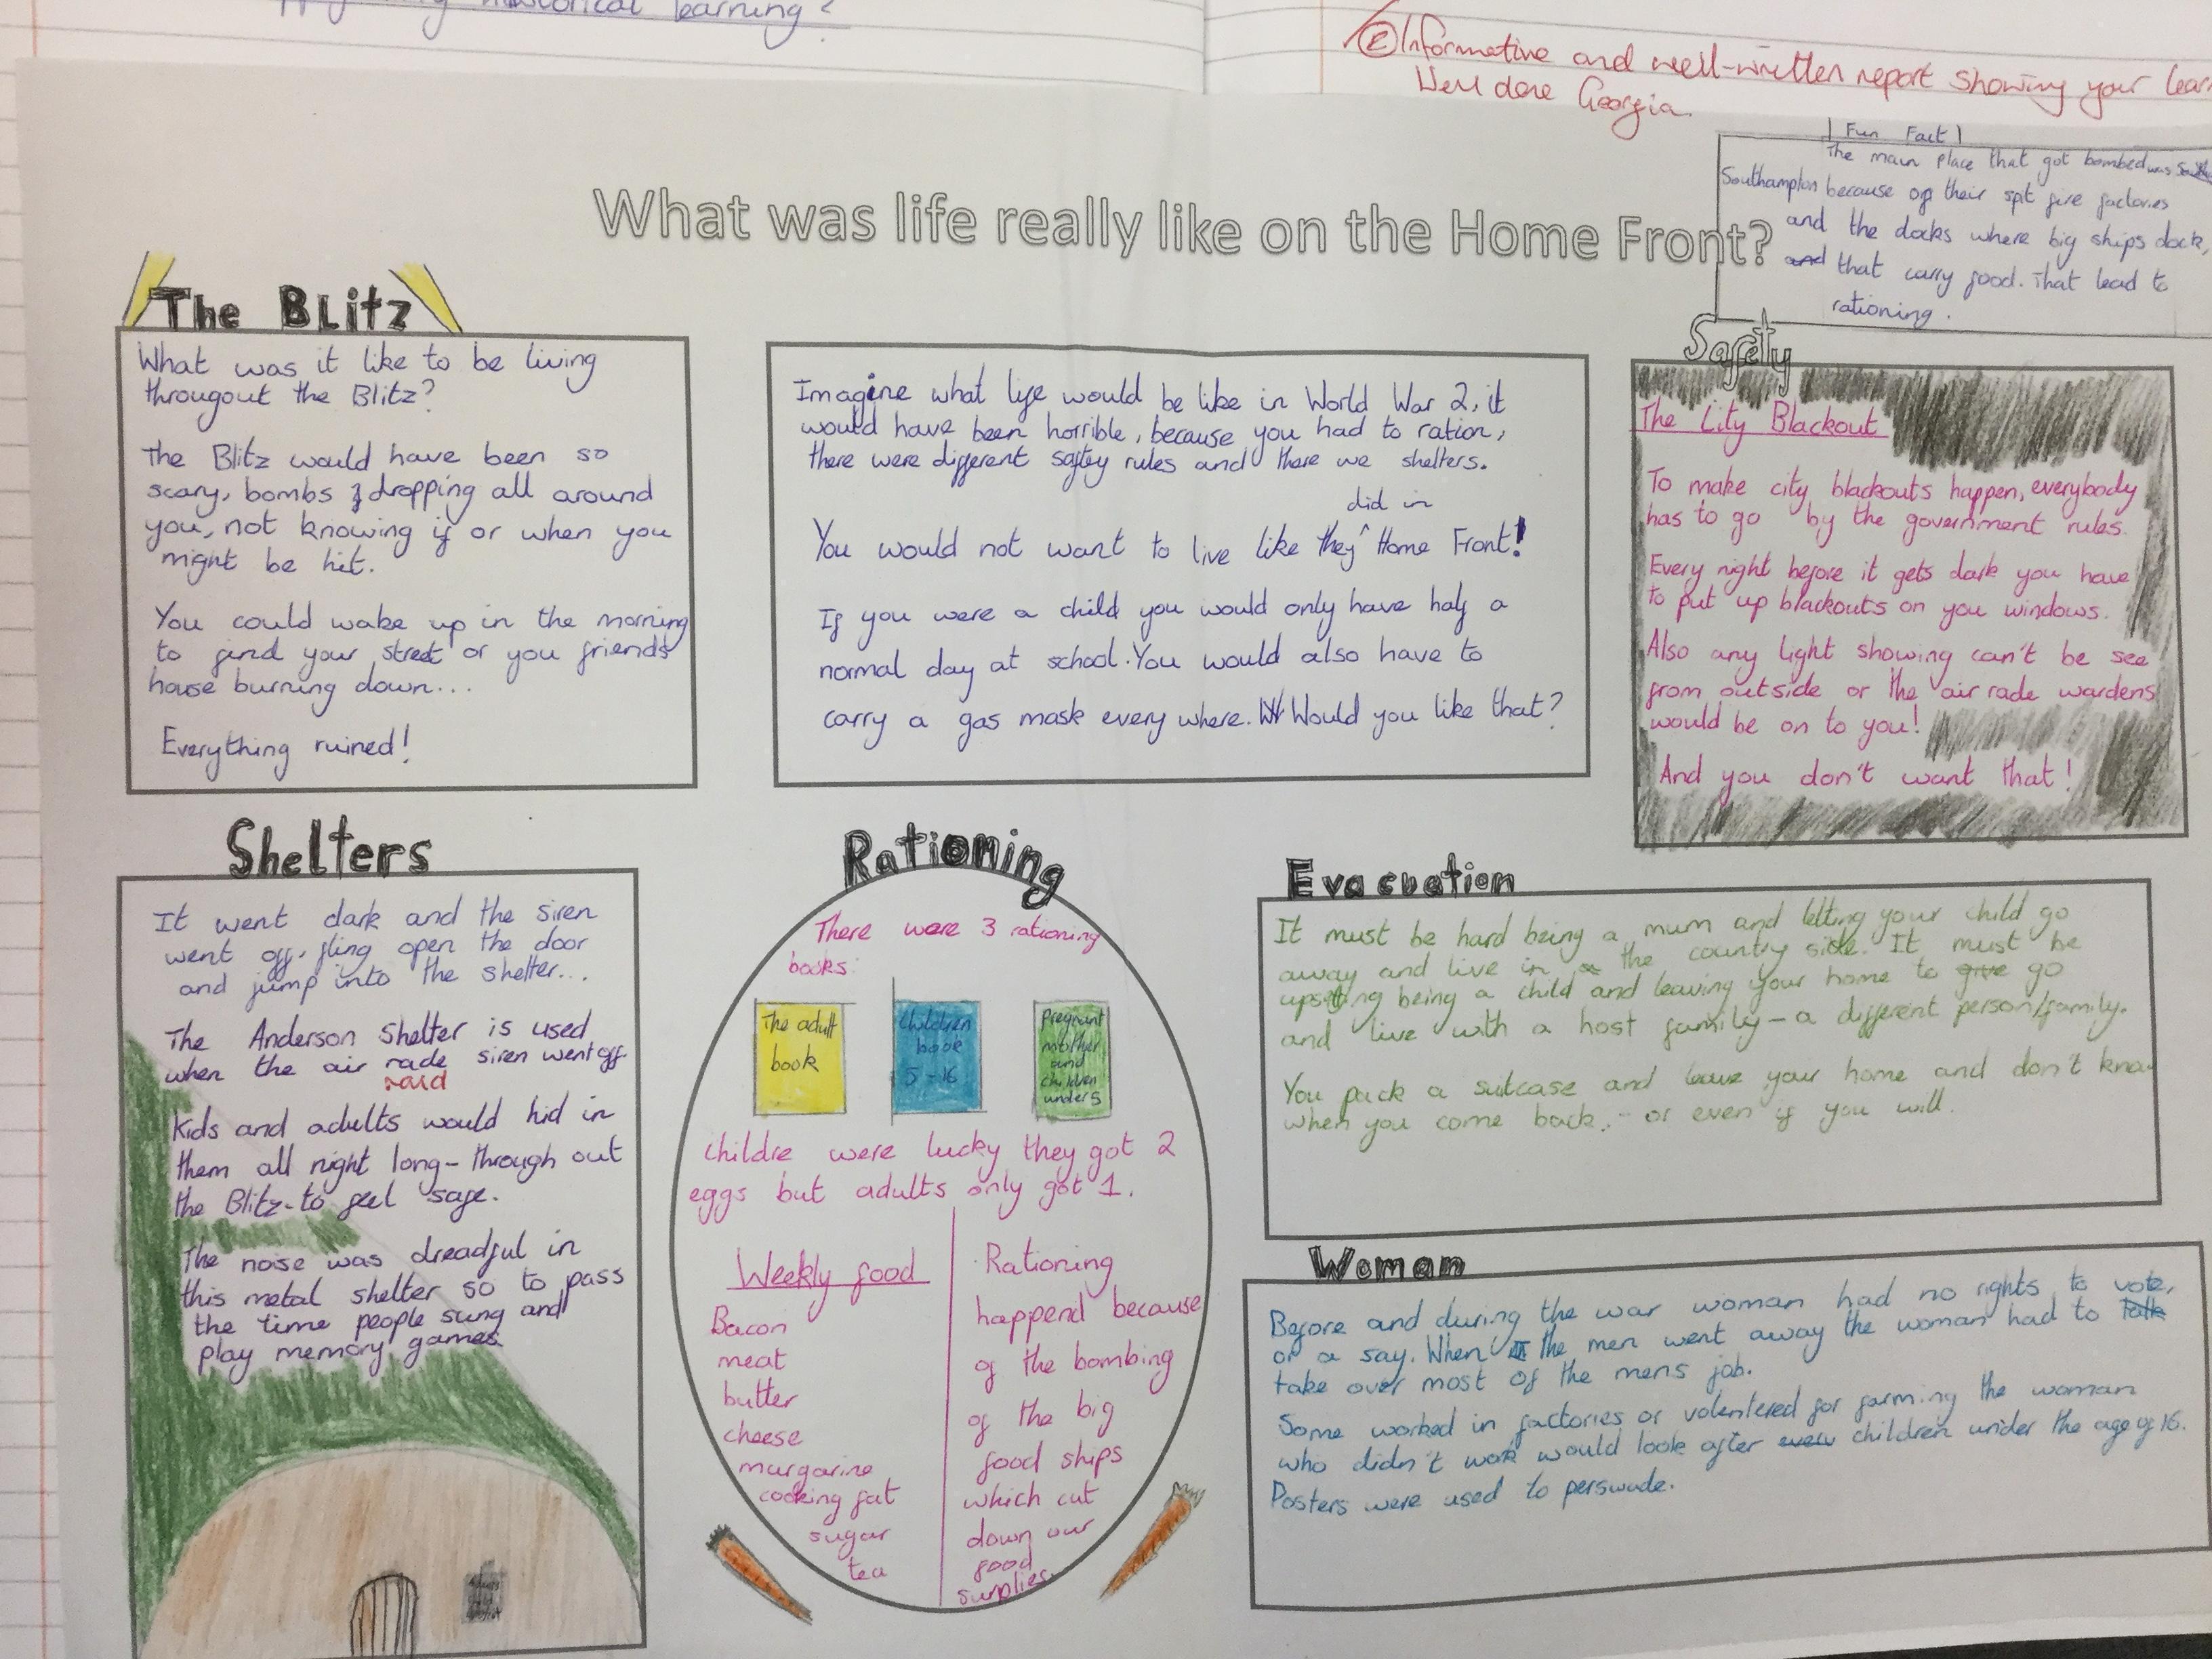 historical learning?
② Informative and well-written report showing your lear
Well done Georgia.
What was life really like on the Home Front?
| Fun Fact |
The main place that got bombed was
Southampton because of their spit fire factories
and the docks where big ships dock,
and that carry food. That lead to
rationing.
The BLitz
What was it like to be living
througout the Blitz?
The Blitz would have been so
scary, bombs dropping all around
you, not knowing if or when you
might be hit.
You could wake up in the morning
to find your street or you friends
house burning down...
Everything ruined!
Imagine what life would be like in World War 2, it
would have been horrible, because you had to ration,
there were different saftey rules and there we shelters.
did in
You would not want to live like they ^ Home Front!
If you were a child you would only have half a
normal day at school. You would also have to
carry a gas mask every where. Would you like that?
Safety
The City Blackout
To make city blackouts happen, everybody
has to go by the government rules.
Every night before it gets dark you have
to put up blackouts on you windows.
Also any light showing can't be see
from outside or the air rade wardens
would be on to you!
And you don't want that!
Shelters
It went dark and the siren
went off, fling open the door
and jump into the shelter...
The Anderson shelter is used
when the air rade siren went off.
raid
Kids and adults would hid in
them all night long - through out
the Blitz - to feel safe.
The noise was dreadful in
this metal shelter so to pass
the time people sung and
play memory games.
Rationing
There were 3 rationing
books:
The adult
book
Children
book
5-16
Pregnant
mother
and
children
under 5
childre were lucky they got 2
eggs but adults only got 1.
Weekly food
Bacon
meat
butter
cheese
margarine
cooking fat
sugar
tea
Rationing
happend because
of the bombing
of the big
food ships
which cut
down our
food
surplies.
Evacuation
It must be hard being a mum and letting your child go
away and live in the country side. It must be
upsetting being a child and leaving your home to give go
and live with a host family - a different person/family.
You pack a suitcase and leave your home and don't kno
when you come back, - or even if you will.
Woman
Before and during the war woman had no rights to vote,
or a say. When the men went away the woman had to talk
take over most of the mens job.
Some worked in factories or volentered for farming the woman
who didn't work would look after every children under the age of 16.
Posters were used to perswade.